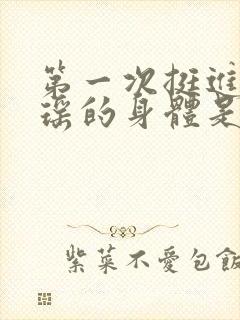 第一次挺進
瑤的身體是
紫菜不愛包飯